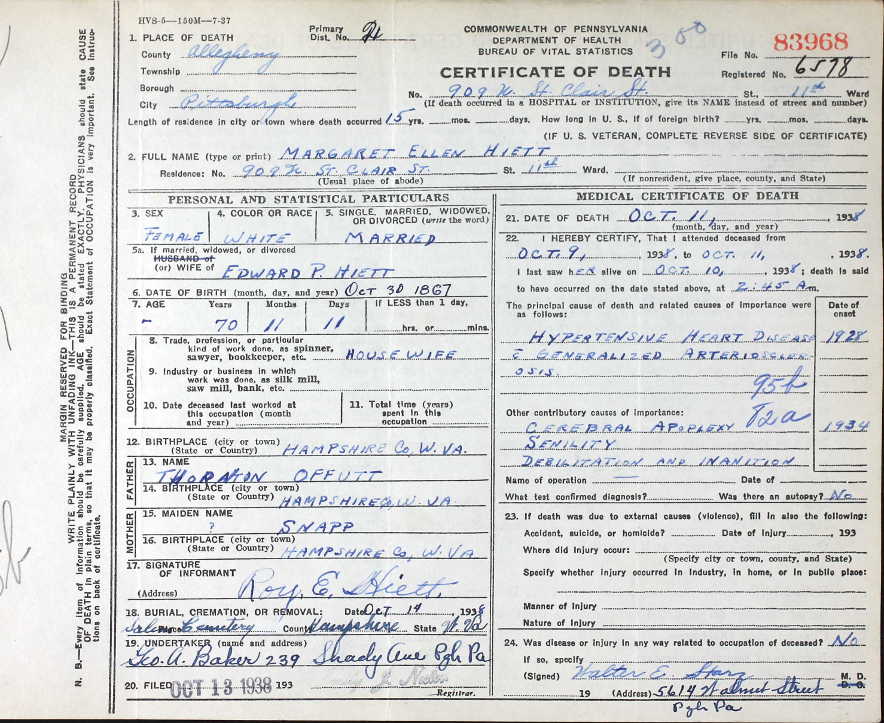 HVS-5—150M—7-37
1. PLACE OF DEATH
County Allegheny
Township
Borough
City Pittsburgh
Primary
Dist. No.
COMMONWEALTH OF PENNSYLVANIA
DEPARTMENT OF HEALTH
BUREAU OF VITAL STATISTICS
CERTIFICATE OF DEATH
File No. 83968
Registered No. 6578
No. 909 N. St. Clair St. St., 11th Ward
(If death occurred in a HOSPITAL or INSTITUTION, give its NAME instead of street and number)
Length of residence in city or town where death occurred 15 yrs. mos. days. How long in U. S., if of foreign birth? yrs. mos. days.
(IF U. S. VETERAN, COMPLETE REVERSE SIDE OF CERTIFICATE)
2. FULL NAME (type or print) MARGARET ELLEN HIETT
Residence: No. 909 N. ST. CLAIR ST. St. 11th Ward.
(Usual place of abode) (If nonresident, give place, county, and State)
PERSONAL AND STATISTICAL PARTICULARS
3. SEX
FEMALE
4. COLOR OR RACE
WHITE
5. SINGLE, MARRIED, WIDOWED,
OR DIVORCED (write the word)
MARRIED
5a. If married, widowed, or divorced
HUSBAND of
(or) WIFE of EDWARD P. HIETT
6. DATE OF BIRTH (month, day, and year) OCT 30 1867
7. AGE Years Months Days If LESS than 1 day,
- 70 11 11 hrs. or mins.
OCCUPATION
8. Trade, profession, or particular
kind of work done, as spinner,
sawyer, bookkeeper, etc. HOUSEWIFE
9. Industry or business in which
work was done, as silk mill,
saw mill, bank, etc.
10. Date deceased last worked at
this occupation (month
and year)
11. Total time (years)
spent in this
occupation
12. BIRTHPLACE (city or town)
(State or Country) HAMPSHIRE CO, W. VA.
FATHER
13. NAME
THORNTON OFFUTT
14. BIRTHPLACE (city or town)
(State or Country) HAMPSHIRE CO, W. VA
MOTHER
15. MAIDEN NAME
? SNAPP
16. BIRTHPLACE (city or town)
(State or Country) HAMPSHIRE CO, W. VA
17. SIGNATURE
OF INFORMANT
(Address) Roy E. Hiett
18. BURIAL, CREMATION, OR REMOVAL: Date OCT 14, 1938
Place Cemetery County Hampshire State W. Va
19. UNDERTAKER (name and address)
Geo. A. Baker 239 Shady Ave Pgh Pa
20. FILED OCT 13 1938 193
Registrar.
MEDICAL CERTIFICATE OF DEATH
21. DATE OF DEATH OCT. 11, 1938
(month, day, and year)
22. I HEREBY CERTIFY, That I attended deceased from
OCT. 9, 1938, to OCT. 11, 1938.
I last saw hER alive on OCT. 10, 1938; death is said
to have occurred on the date stated above, at 2:45 A m.
The principal cause of death and related causes of importance were
as follows:
Date of
onset
HYPERTENSIVE HEART DISEASE 1928
& GENERALIZED ARTERIOSCLER-
OSIS.
95b
Other contributory causes of importance:
CEREBRAL APOPLEXY 1934
SENILITY
DEBILITATION AND INANITION
Name of operation — Date of
What test confirmed diagnosis? Was there an autopsy? No
23. If death was due to external causes (violence), fill in also the following:
Accident, suicide, or homicide? Date of Injury , 193
Where did injury occur:
(Specify city or town, county, and State)
Specify whether injury occurred in Industry, in home, or in public place:
Manner of Injury
Nature of Injury
24. Was disease or injury in any way related to occupation of deceased? No
If so, specify
(Signed) Walter E. M. D.
D. O.
19 (Address) 5614 Walnut Street
Pgh Pa
MARGIN RESERVED FOR BINDING
WRITE PLAINLY WITH UNFADING INK—THIS IS A PERMANENT RECORD
N. B.—Every item of information should be carefully supplied. AGE should be stated EXACTLY. PHYSICIANS should state CAUSE
OF DEATH in plain terms, so that it may be properly classified. Exact Statement of OCCUPATION is very important. See instruc-
tions on back of certificate.